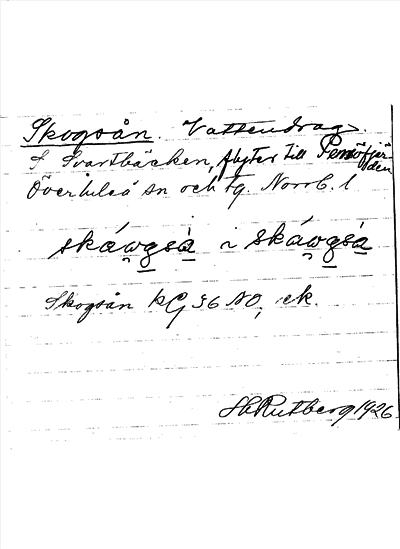 Skogsån. Vattendrag.
f Svartbäcken, flyter till Persöfjär-
den
Överluleå sn och tg. Norrb. l
skáwgsà i skáwgsà
Skogsån KG 56 NO, ek.
Rutberg 1926.